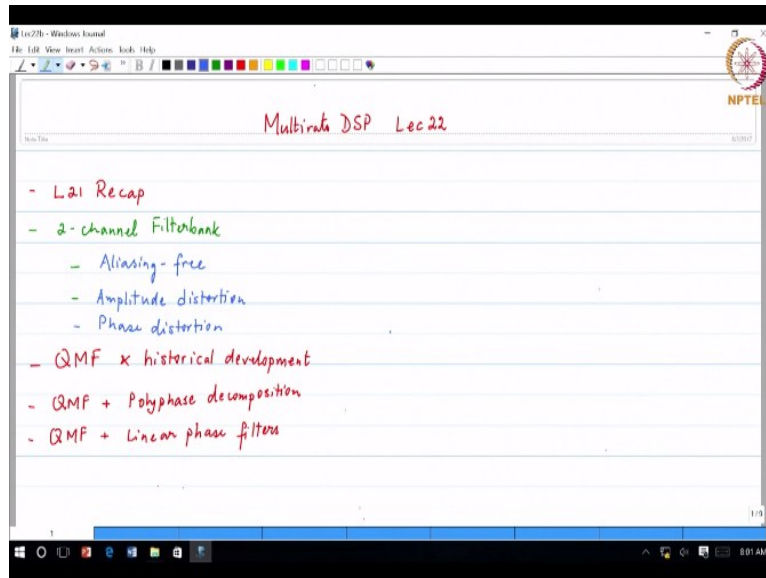 Lec22b - Windows Journal
File Edit View Insert Actions Tools Help
B I
NPTEL
Multirate DSP Lec 22
Note Title
- L21 Recap
- 2-channel Filterbank
- Aliasing-free
- Amplitude distortion
- Phase distortion
- QMF x historical development
- QMF + Polyphase decomposition
- QMF + Linear phase filters
1/9
1
8:01 AM